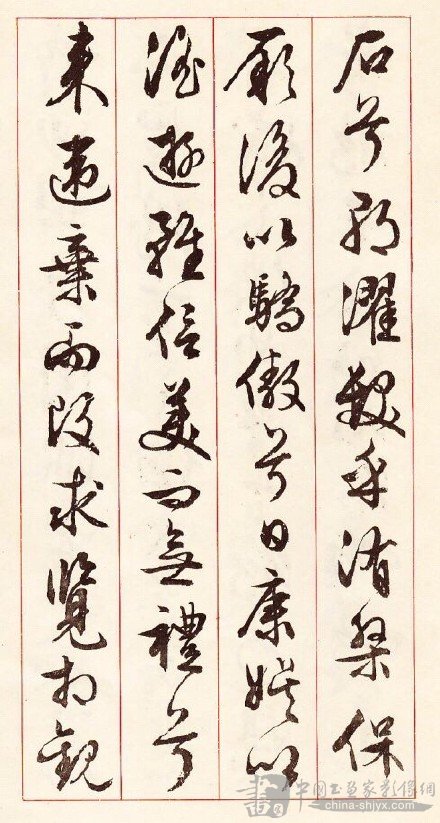 石兮朝濯髮乎洧槃保
厥後以驕傲兮日康娛以
淫遊雖信美而無禮兮
來違棄而改求覽相觀
中國书画家影像網
china-shjyx.com